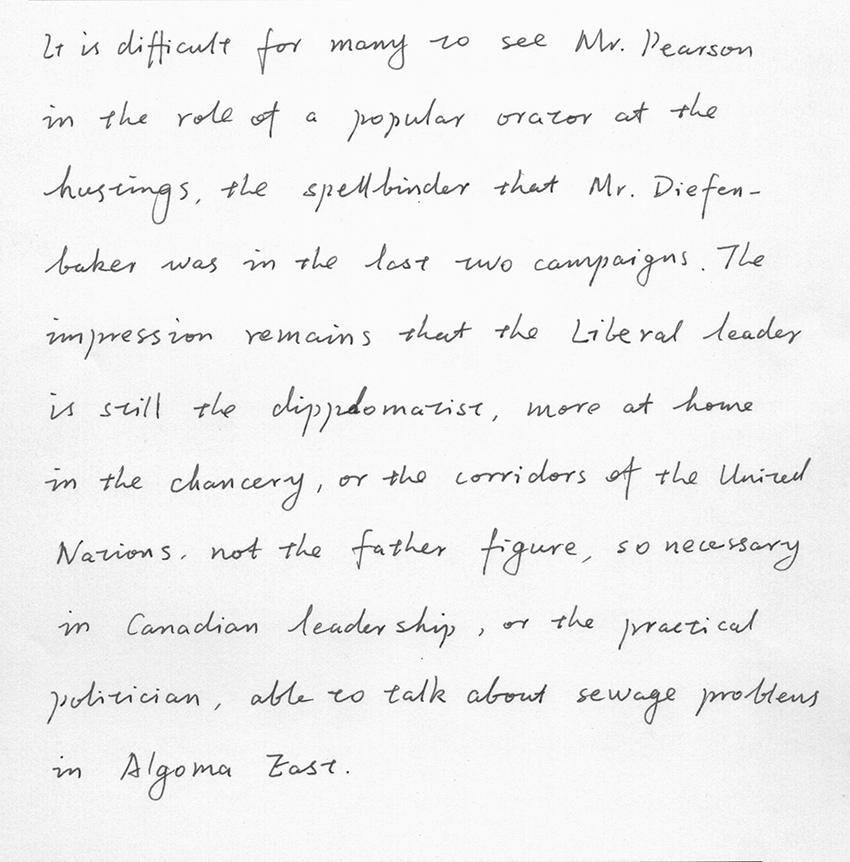 It is difficult for many to see Mr. Pearson
in the role of a popular orator at the
hustings, the spellbinder that Mr. Diefen-
baker was in the last two campaigns. The
impression remains that the Liberal leader
is still the dippdomatist, more at home
in the chancery, or the corridors of the United
Nations. not the father figure, so necessary
in Canadian leadership, or the practical
politician, able to talk about sewage problems
in Algoma East.